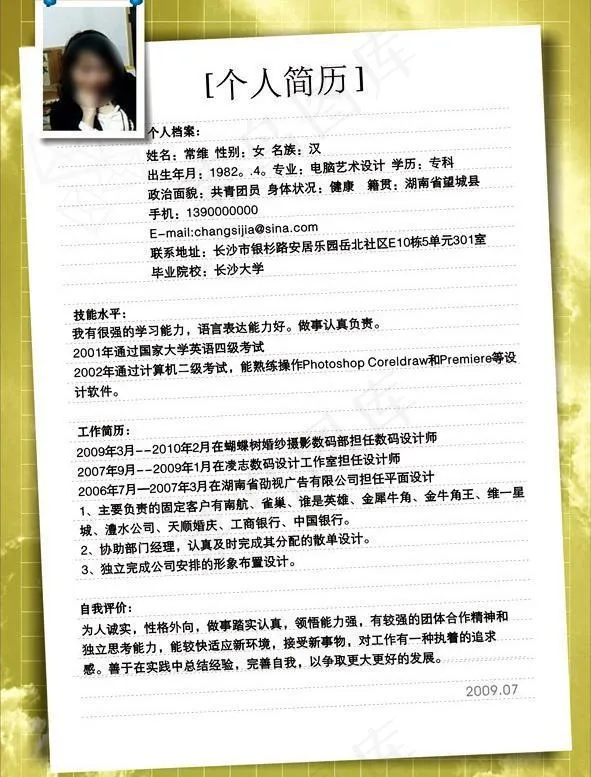 [个人简历]
个人档案：
姓名：常维 性别：女 名族：汉
出生年月：1982。.4。专业：电脑艺术设计 学历：专科
政治面貌：共青团员 身体状况：健康 籍贯：湖南省望城县
手机：1390000000
E-mail:changsijia@sina.com
联系地址：长沙市银杉路安居乐园岳北社区E10栋5单元301室
毕业院校：长沙大学
技能水平：
我有很强的学习能力，语言表达能力好。做事认真负责。
2001年通过国家大学英语四级考试
2002年通过计算机二级考试，能熟练操作Photoshop Coreldraw和Premiere等设
计软件。
工作简历：
2009年3月--2010年2月在蝴蝶树婚纱摄影数码部担任数码设计师
2007年9月--2009年1月在凌志数码设计工作室担任设计师
2006年7月—2007年3月在湖南省劭视广告有限公司担任平面设计
1、主要负责的固定客户有南航、雀巢、谁是英雄、金犀牛角、金牛角王、维一星
城、澧水公司、天顺婚庆、工商银行、中国银行。
2、协助部门经理，认真及时完成其分配的散单设计。
3、独立完成公司安排的形象布置设计。
自我评价：
为人诚实，性格外向，做事踏实认真，领悟能力强，有较强的团体合作精神和
独立思考能力，能较快适应新环境，接受新事物，对工作有一种执着的追求
感。善于在实践中总结经验，完善自我，以争取更大更好的发展。
2009.07